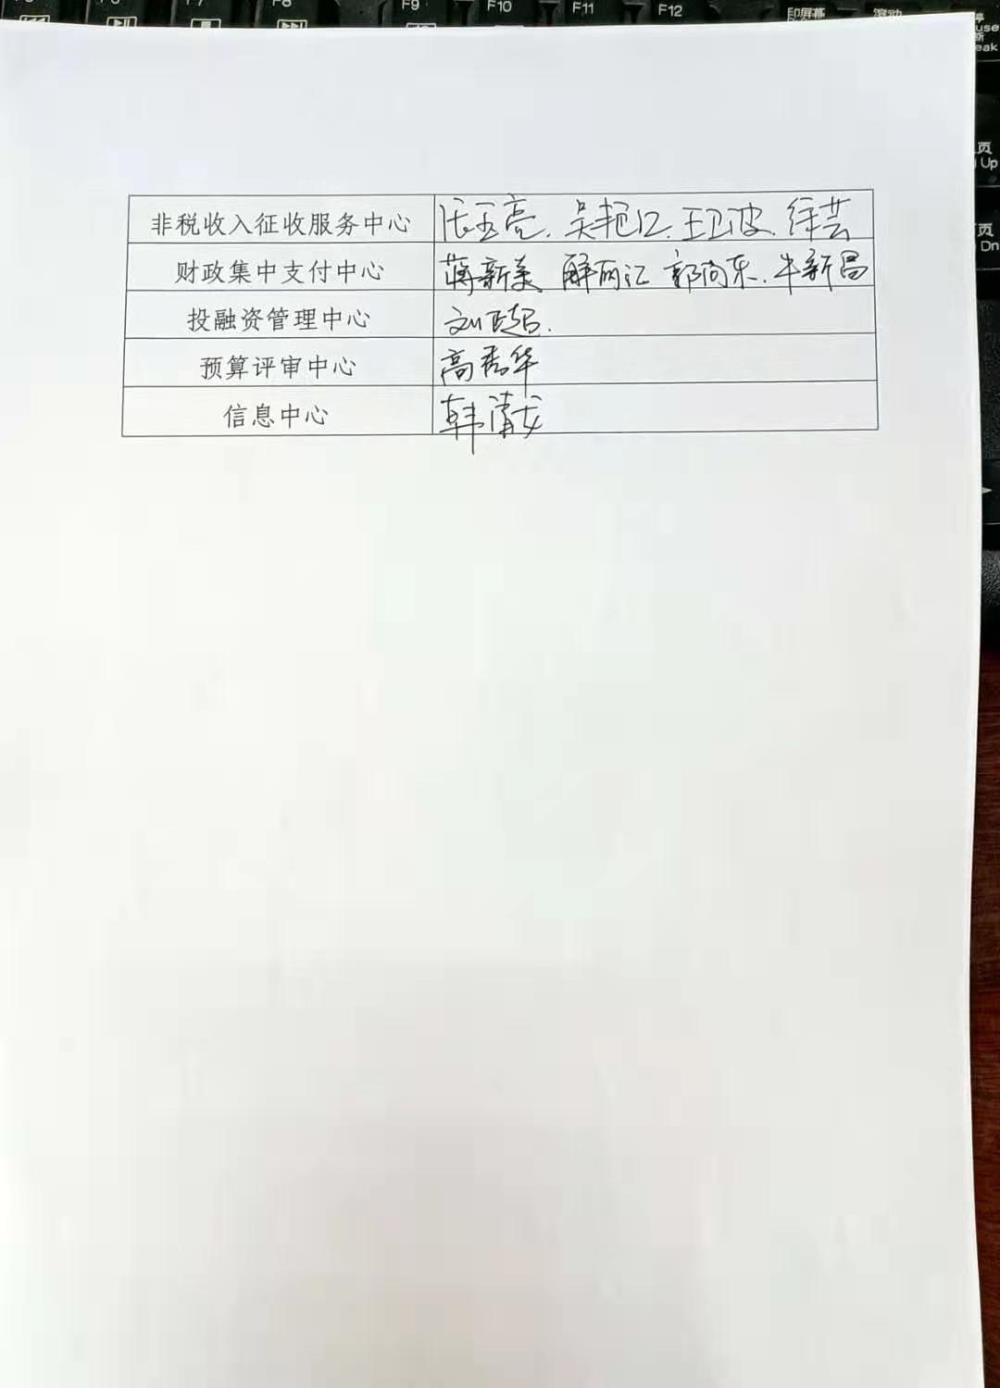 F9 F10 F11 F12 印屏幕
非税收入征收服务中心 张玉亮、吴艳江、王卫波、徐芸
财政集中支付中心 蒋新美 解丽江 郭向东、牛新昌
投融资管理中心 刘超
预算评审中心 高秀华
信息中心 韩清龙